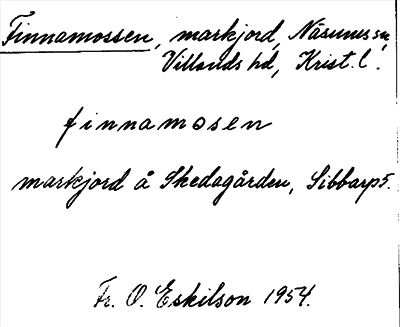 Finnamossen, markjord, Näsums sn,
Villands hd, Krist. l.
finnamosen
markjord å Skedagården, Sibbarp5.
Fr. O. Eskilson 1954.